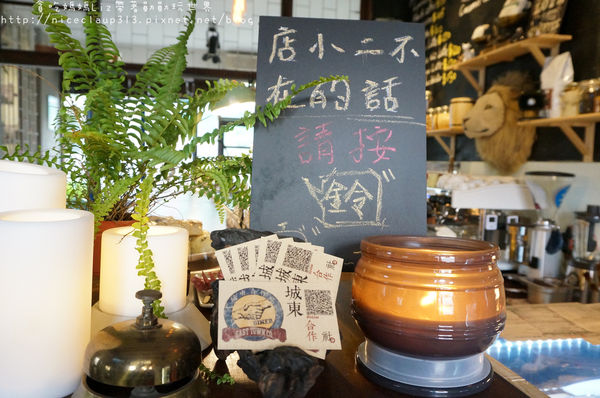 貪吃媽媽Liz帶著甜甜玩世界
http://niceclaup313.pixnet.net/blog
店小二不
在的話
請按
鈴
城東
合作社
EAST TOWN CO.